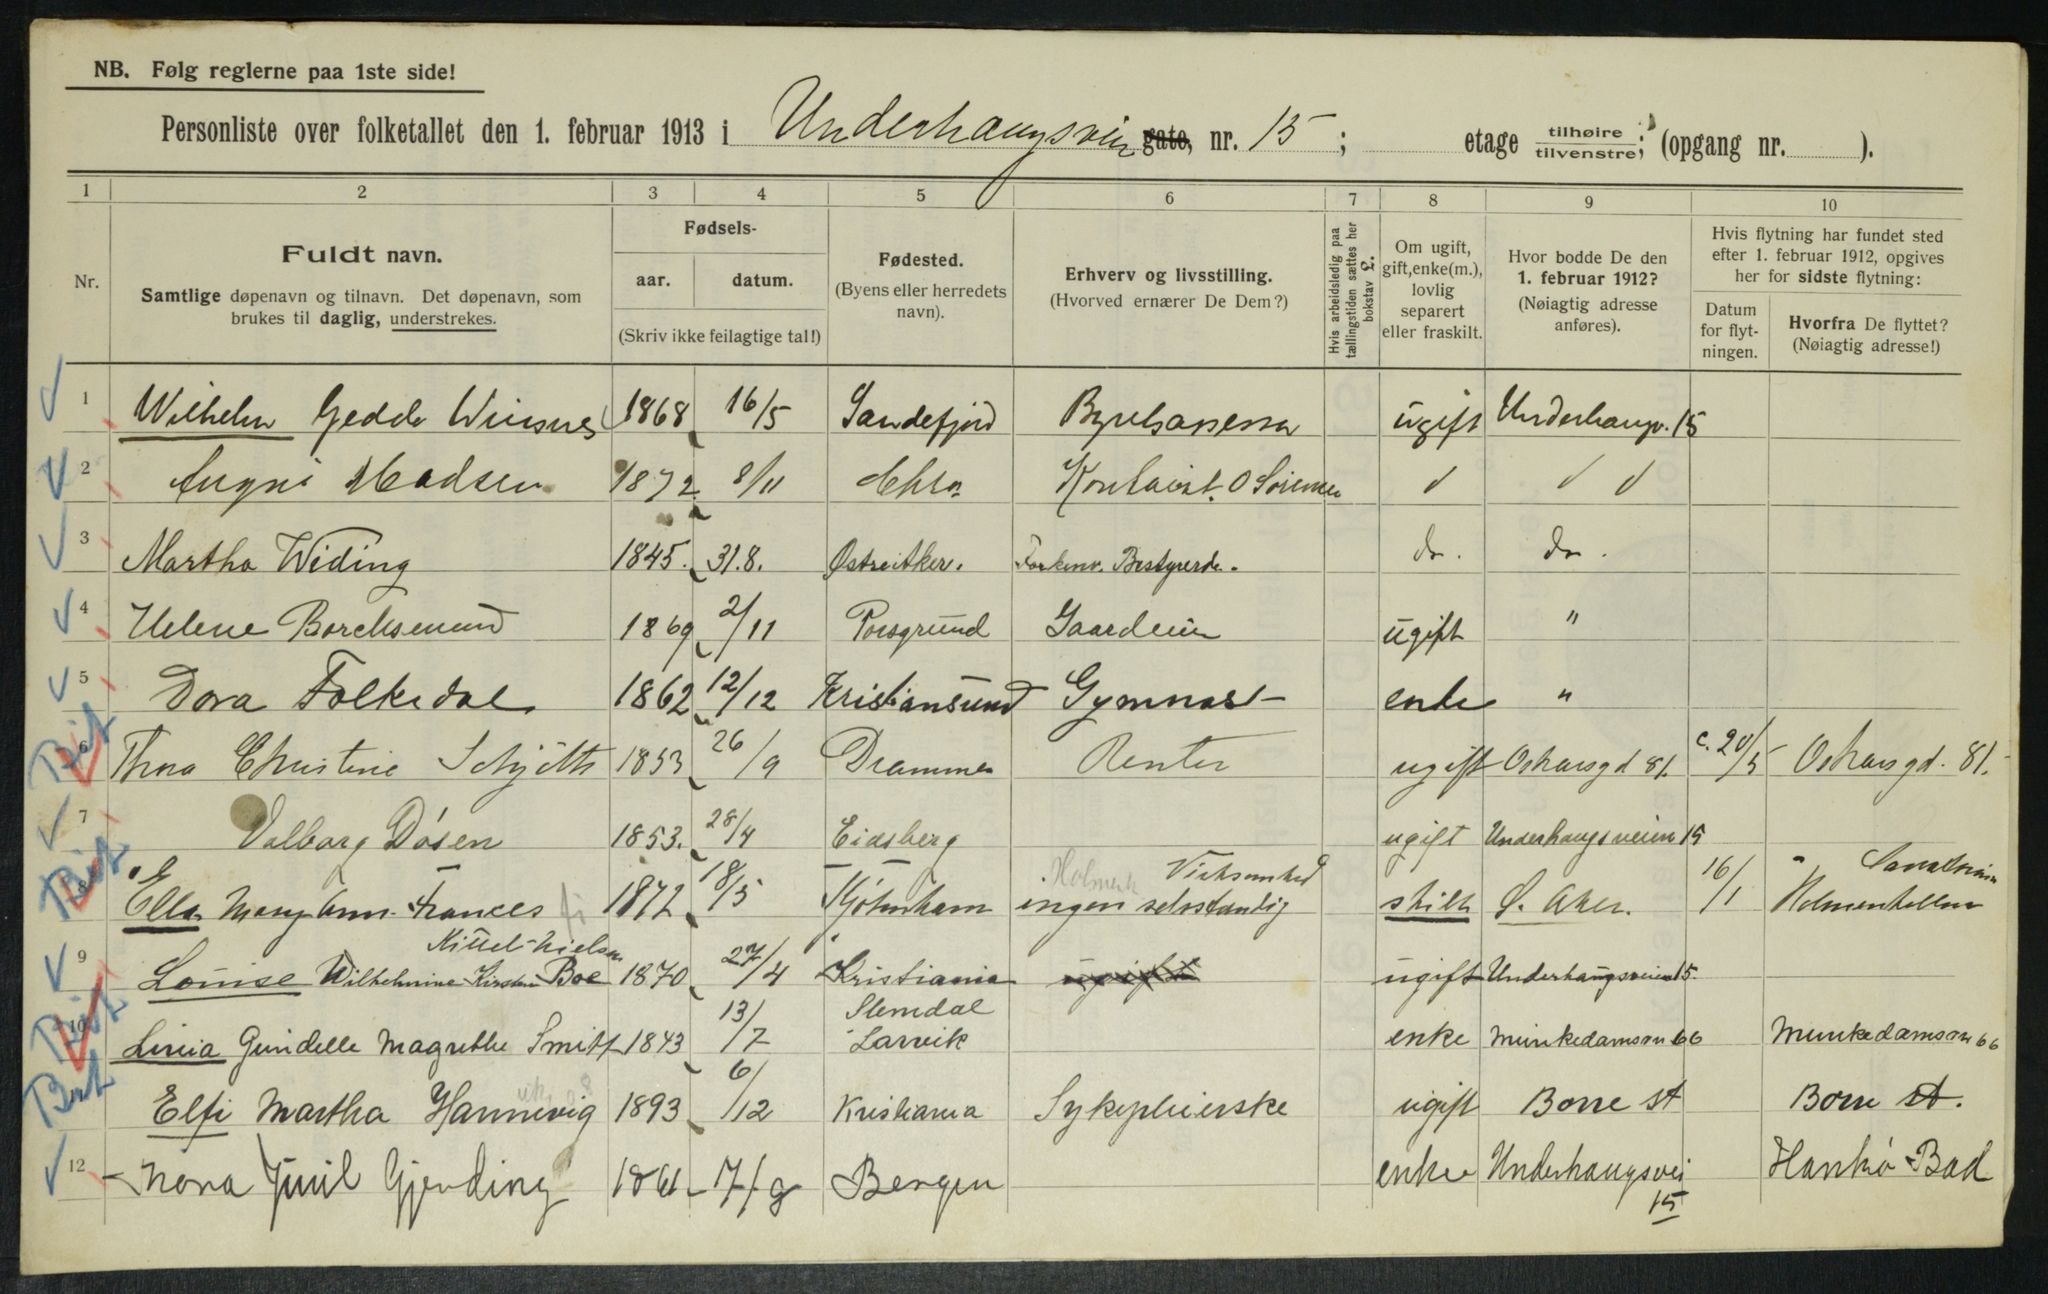 NB. Følg reglerne paa 1ste side!
Personliste over folketallet den 1. februar 1913 i Underhaugsveien gate, nr. 15 ; etage tilhøire / tilvenstre; (opgang nr. ).
1 2 3 4 5 6 7 8 9 10
Nr.
Fuldt navn.
Samtlige døpenavn og tilnavn. Det døpenavn, som
brukes til daglig, understrekes.
Fødsels-
aar. datum.
(Skriv ikke feilagtige tal!)
Fødested.
(Byens eller herredets
navn).
Erhverv og livsstilling.
(Hvorved ernærer De Dem?)
Hvis arbeidsledig paa
tællingstiden sættes her
bokstav £.
Om ugift,
gift, enke(m.),
lovlig
separert
eller fraskilt.
Hvor bodde De den
1. februar 1912?
(Nøiagtig adresse
anføres).
Hvis flytning har fundet sted
efter 1. februar 1912, opgives
her for sidste flytning:
Datum
for flyt-
ningen.
Hvorfra De flyttet?
(Nøiagtig adresse!)
1 Wilhelm Gedde 1868 16/5 Sandefjord ugift Underhaugv. 15
2 Madsen 1872 8/11 Chra
3 Martha Widing 1845. 31.8. Østre Aker. Bestyrerde. do. do.
4 Helene Borchsenius 1869 2/11 Porsgrund ugift "
5 Dora Folkedal 1862 12/12 Kristiansund Gymnast enke "
6 Thora Christine Schjøtt 1853 26/9 Drammen Renter ugift Oskarsgd 81. c. 20/5 Oskarsgd. 81.
7 Valborg Døsen 1853. 28/4 Eidsberg ugift Underhaugsveien 15
8 Ella Mary Ann Frances 1872 18/5 ingen selvstændig Virksomhed skilt S. Aker. 16/1 Holmenkollen
Kittel-Nielsen
9 Louise Wilhelmine Kirstine Boe 1870 27/4 Kristiania ugift ugift Underhaugsveien 15.
Slemdal
10 Livia Gundelle Magrethe Smitt 1843 13/7 Larvik enke Munkedamsvn 66 Munkedamsvn 66
Elfi Martha Hannevig 1893 6/12 Kristiania Sykepleierske ugift Borre st Borre st.
12 Nora Juul Gjerding 1861 7/9 Bergen enke Underhaugsvei Hankø Bad
15